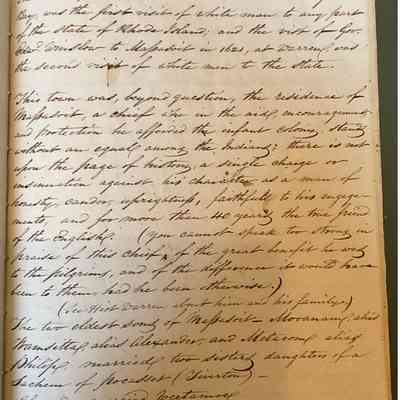 Bay, was the first visit of white man to any part
of the state of Rhode Island; and the visit of Gov.
Winslow to Massasoit in 1621, at Warren, was
the second visit of white men to the state.
This town was, beyond question, the residence of
Massasoit, a chief who in the aid, encouragement,
and protection he afforded the infant colony, stands
without an equal among the Indians; there is not
upon the page of history, a single charge or
insinuation against his character as a man of
honesty, candor, uprightness, faithful to his engage-
ments, and for more than 40 years the true friend
of the English. (you cannot speak too strong in
praise of this chief & of the great benefit he was
to the pilgrims, and of the difference it would have
been to them, had he been otherwise.)
(See Hist Warren about him and his family.)
The two eldest sons of Massasoit - Mooanam, alias
Wamsetta, alias Alexander, and Metacom, alias
Philip, married two sisters, daughters of a
Sachem of Pocasset (Tiverton) -
Weetamoe